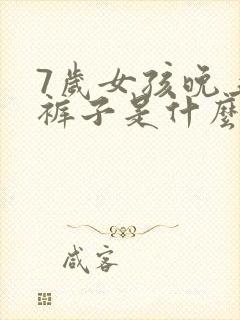 7歲女孩晚
裤子是什麼
咸客